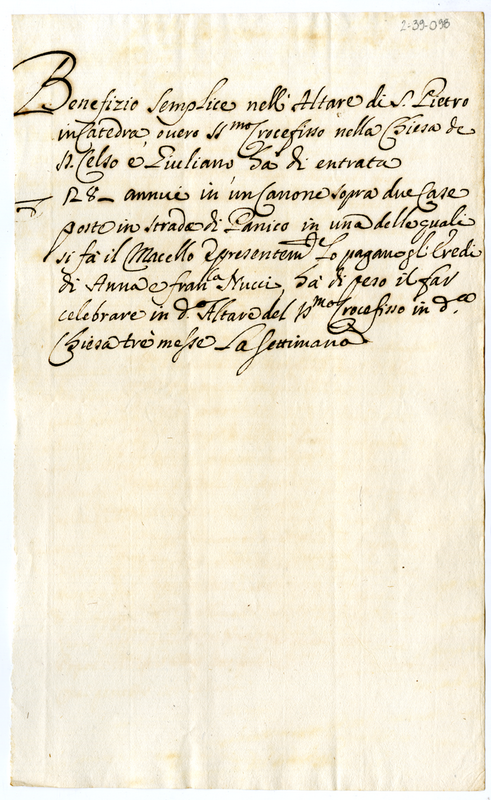 2-39-098
Benefizio Semplice nell'Altare di S. Pietro
in Catedra, overo SS.mo Crocefisso nella Chiesa de
SS. Celso e Giuliano hà di entrata
128 – annue in un Canone sopra due Case
poste in strada di Panico in una delle quali
si fà il Macello presentem.te Lo pagano gl'Eredi
di Anna e Fran.ca Nucci, hà di peso il far
celebrare in d.o Altare del SS.mo Crocefisso in d.a
Chiesa trè messe La Settimana